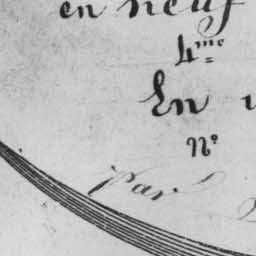 en neuf
4me
En
N°
Par